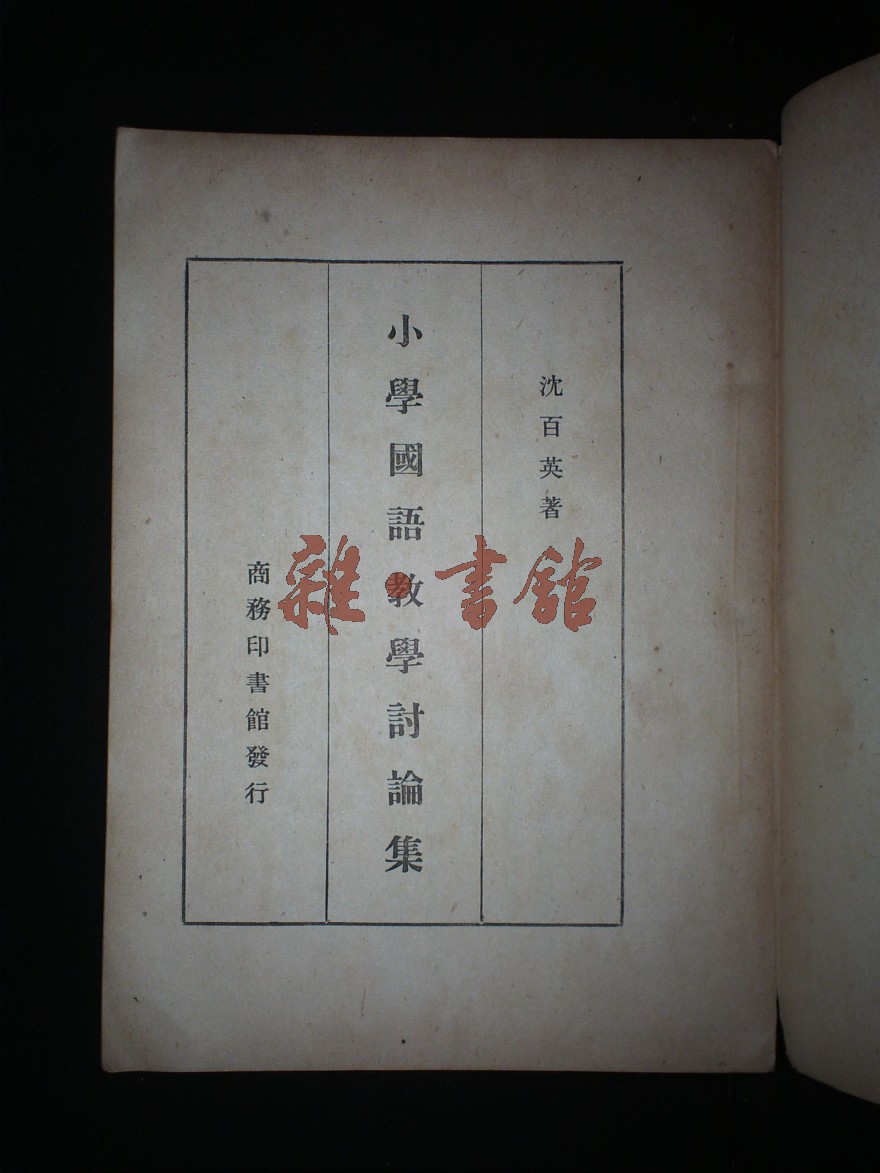 沈百英著
小學國語教學討論集
商務印書館發行
雜書館